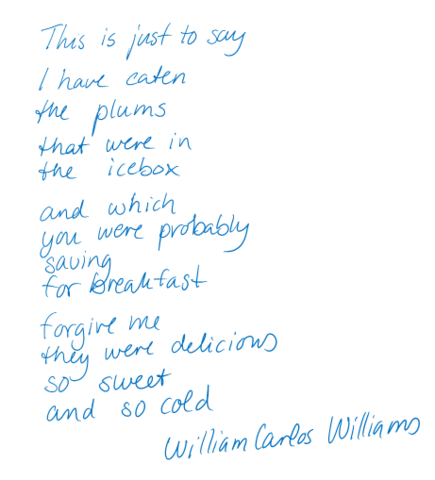 This is just to say
I have eaten
the plums
that were in
the icebox
and which
you were probably
saving
for breakfast
forgive me
they were delicious
so sweet
and so cold
William Carlos Williams